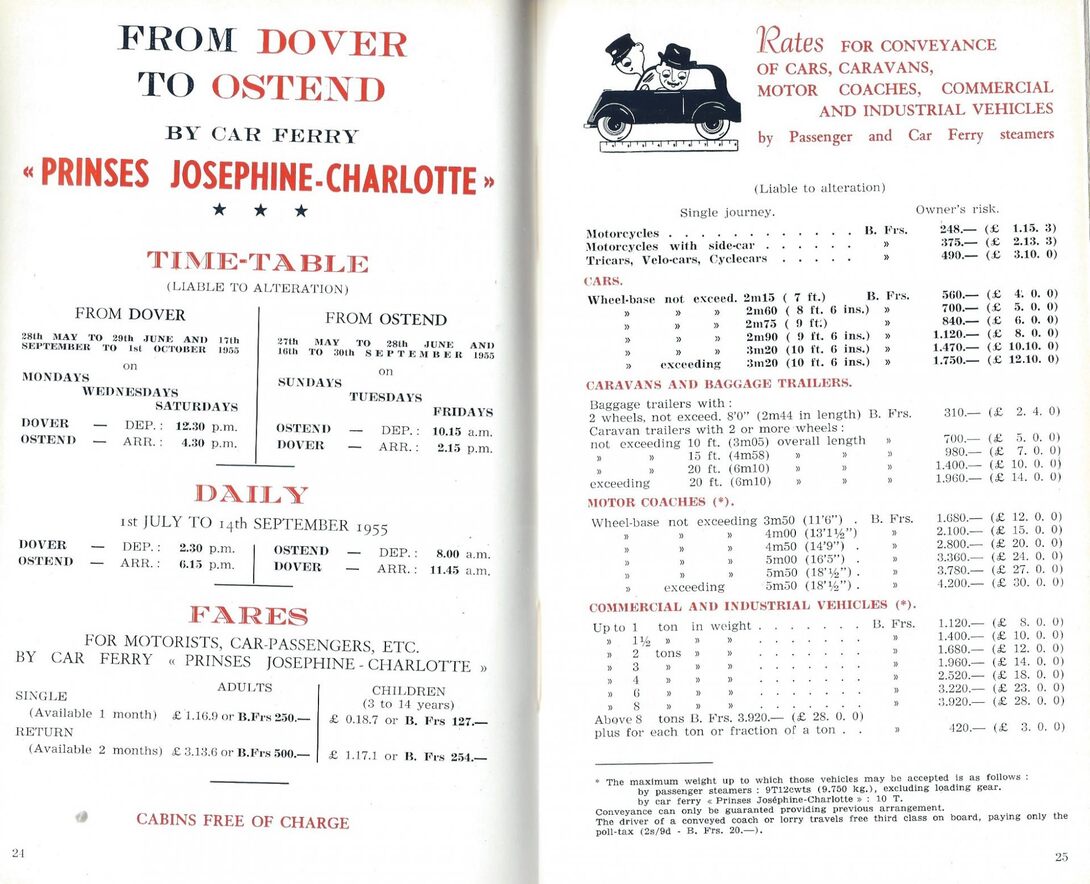 FROM DOVER
TO OSTEND
BY CAR FERRY
« PRINSES JOSEPHINE-CHARLOTTE »
★ ★ ★
TIME-TABLE
(LIABLE TO ALTERATION)
FROM DOVER
28th MAY TO 29th JUNE AND 17th
SEPTEMBER TO 1st OCTOBER 1955
on
MONDAYS
WEDNESDAYS
SATURDAYS
DOVER — DEP. : 12.30 p.m.
OSTEND — ARR. : 4.30 p.m.
FROM OSTEND
27th MAY TO 28th JUNE AND
16th TO 30th SEPTEMBER 1955
on
SUNDAYS
TUESDAYS
FRIDAYS
OSTEND — DEP. : 10.15 a.m.
DOVER — ARR. : 2.15 p.m.
DAILY
1st JULY TO 14th SEPTEMBER 1955
DOVER — DEP. : 2.30 p.m.
OSTEND — ARR. : 6.15 p.m.
OSTEND — DEP. : 8.00 a.m.
DOVER — ARR. : 11.45 a.m.
FARES
FOR MOTORISTS, CAR-PASSENGERS, ETC.
BY CAR FERRY « PRINSES JOSEPHINE - CHARLOTTE »
ADULTS
CHILDREN
(3 to 14 years)
SINGLE
(Available 1 month) £ 1.16.9 or B.Frs 250.— £ 0.18.7 or B. Frs 127.—
RETURN
(Available 2 months) £ 3.13.6 or B.Frs 500.— £ 1.17.1 or B. Frs 254.—
CABINS FREE OF CHARGE
24
Rates FOR CONVEYANCE
OF CARS, CARAVANS,
MOTOR COACHES, COMMERCIAL
AND INDUSTRIAL VEHICLES
by Passenger and Car Ferry steamers
(Liable to alteration)
Single journey. Owner's risk.
Motorcycles . . . . . . . . . . . . B. Frs. 248.— (£ 1.15. 3)
Motorcycles with side-car . . . . . . » 375.— (£ 2.13. 3)
Tricars, Velo-cars, Cyclecars . . . . . » 490.— (£ 3.10. 0)
CARS.
Wheel-base not exceed. 2m15 ( 7 ft.) B. Frs. 560.— (£ 4. 0. 0)
» » » 2m60 ( 8 ft. 6 ins.) » 700.— (£ 5. 0. 0)
» » » 2m75 ( 9 ft.) » 840.— (£ 6. 0. 0)
» » » 2m90 ( 9 ft. 6 ins.) » 1.120.— (£ 8. 0. 0)
» » » 3m20 (10 ft. 6 ins.) » 1.470.— (£ 10.10. 0)
» exceeding 3m20 (10 ft. 6 ins.) » 1.750.— (£ 12.10. 0)
CARAVANS AND BAGGAGE TRAILERS.
Baggage trailers with :
2 wheels, not exceed. 8'0" (2m44 in length) B. Frs. 310.— (£ 2. 4. 0)
Caravan trailers with 2 or more wheels :
not exceeding 10 ft. (3m05) overall length » 700.— (£ 5. 0. 0)
» » 15 ft. (4m58) » » » 980.— (£ 7. 0. 0)
» » 20 ft. (6m10) » » » 1.400.— (£ 10. 0. 0)
exceeding 20 ft. (6m10) » » » 1.960.— (£ 14. 0. 0)
MOTOR COACHES (*).
Wheel-base not exceeding 3m50 (11'6") . B. Frs. 1.680.— (£ 12. 0. 0)
» » » 4m00 (13'1½") » 2.100.— (£ 15. 0. 0)
» » » 4m50 (14'9") . » 2.800.— (£ 20. 0. 0)
» » » 5m00 (16'5") . » 3.360.— (£ 24. 0. 0)
» » » 5m50 (18'½") . » 3.780.— (£ 27. 0. 0)
» exceeding 5m50 (18'½") . » 4.200.— (£ 30. 0. 0)
COMMERCIAL AND INDUSTRIAL VEHICLES (*).
Up to 1 ton in weight . . . . . . . B. Frs. 1.120.— (£ 8. 0. 0)
» 1½ » » » . . . . . . . » 1.400.— (£ 10. 0. 0)
» 2 tons » » . . . . . . . » 1.680.— (£ 12. 0. 0)
» 3 » » » . . . . . . . » 1.960.— (£ 14. 0. 0)
» 4 » » » . . . . . . . » 2.520.— (£ 18. 0. 0)
» 6 » » » . . . . . . . » 3.220.— (£ 23. 0. 0)
» 8 » » » . . . . . . . » 3.920.— (£ 28. 0. 0)
Above 8 tons B. Frs. 3.920.— (£ 28. 0. 0)
plus for each ton or fraction of a ton . . » 420.— (£ 3. 0. 0)
* The maximum weight up to which those vehicles may be accepted is as follows :
by passenger steamers : 9T12cwts (9.750 kg.), excluding loading gear.
by car ferry « Prinses Joséphine-Charlotte » : 10 T.
Conveyance can only be guaranted providing previous arrangement.
The driver of a conveyed coach or lorry travels free third class on board, paying only the
poll-tax (2s/9d - B. Frs. 20.—).
25